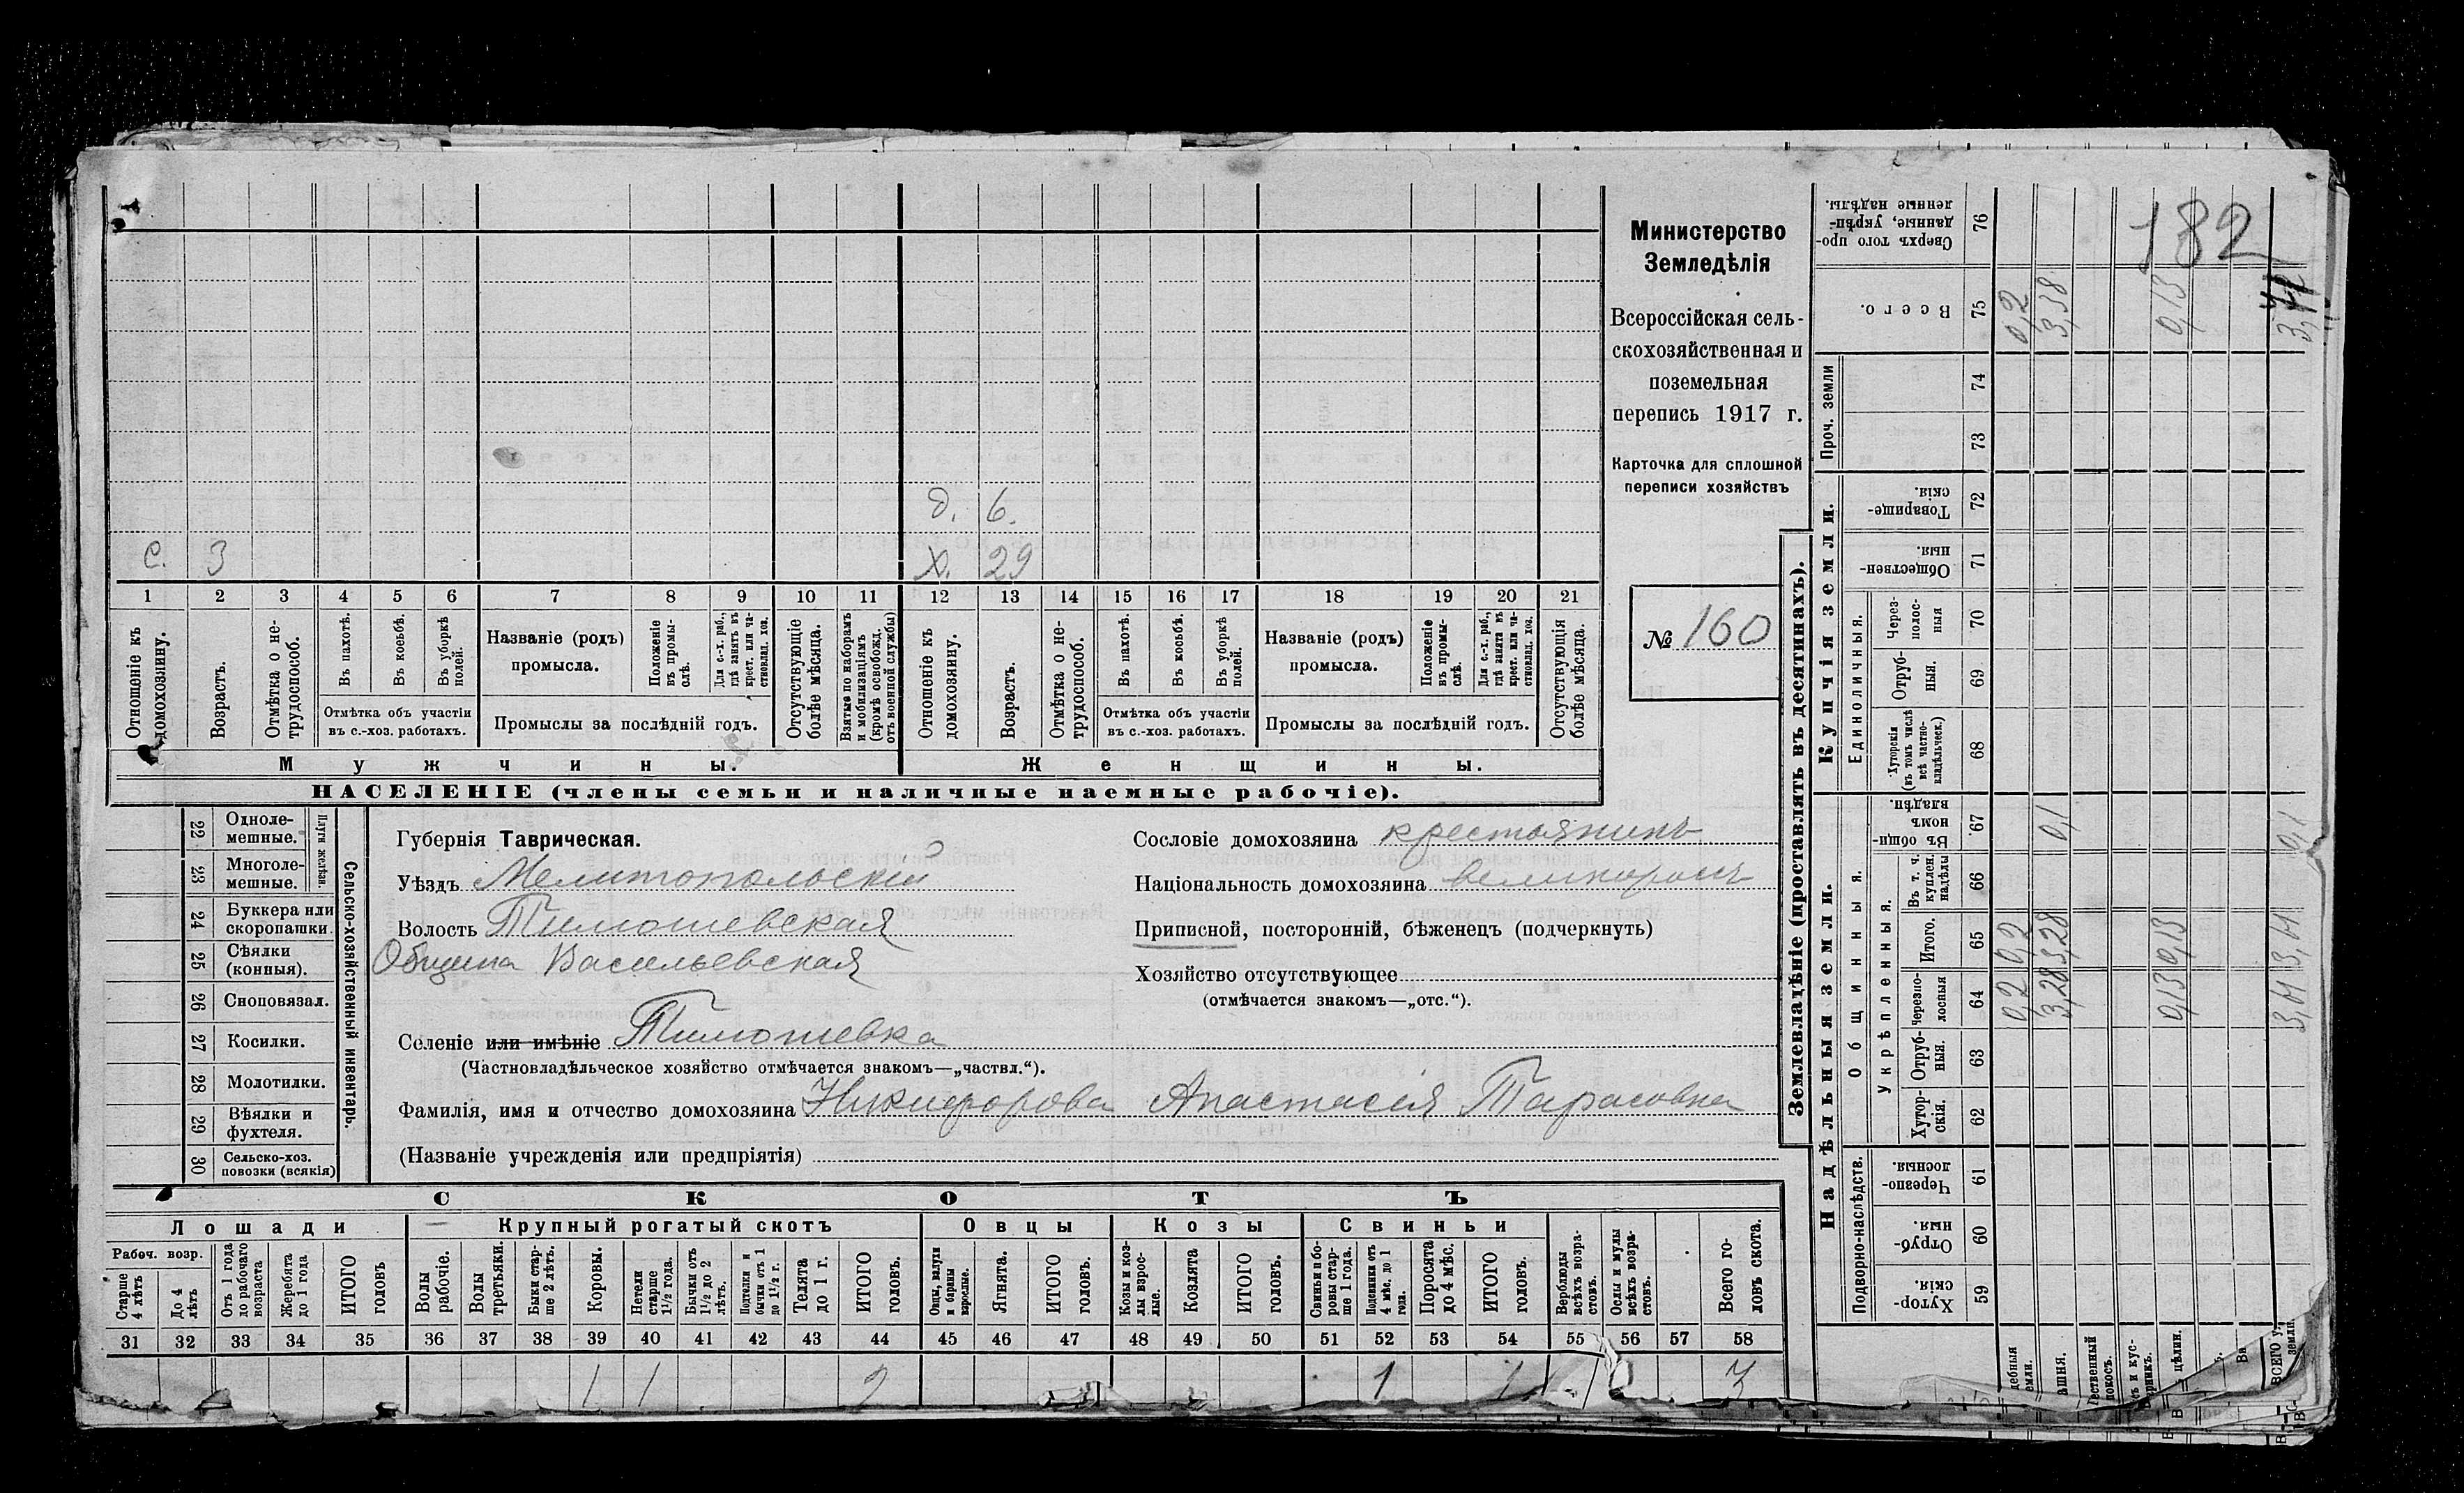 д. 6.
с. 3 х. 29
1 2 3 4 5 6 7 8 9 10 11 12 13 14 15 16 17 18 19 20 21
Отношеніе къ домохозяину.
Возрастъ.
Отмѣтка о нетрудоспособ.
Въ пахотѣ.
Въ косьбѣ.
Въ уборкѣ полей.
Отмѣтка объ участіи
въ с.-хоз. работахъ.
Названіе (родъ)
промысла.
Положеніе въ промыслѣ.
Для с.-х. раб., гдѣ занятъ въ крест. или частновлад. хоз.
Промыслы за послѣдній годъ.
Отсутствующіе болѣе мѣсяца.
Взятые по наборамъ и мобилизаціямъ (кромѣ освобожд. отъ военной службы)
Отношеніе къ домохозяину.
Возрастъ.
Отмѣтка о нетрудоспособ.
Въ пахотѣ.
Въ косьбѣ.
Въ уборкѣ полей.
Отмѣтка объ участіи
въ с.-хоз. работахъ.
Названіе (родъ)
промысла.
Положеніе въ промыслѣ.
Для с.-х. раб., гдѣ занята въ крест. или частновлад. хоз.
Промыслы за послѣдній годъ.
Отсутствующія болѣе мѣсяца.
Мужчины.
Женщины.
НАСЕЛЕНІЕ (члены семьи и наличные наемные рабочіе).
Министерство
Земледѣлія
Всероссійская сель-
скохозяйственная и
поземельная
перепись 1917 г.
Карточка для сплошной
переписи хозяйствъ
№ 160
22 Одноле-
мешные.
23 Многоле-
мешные.
Плуги желѣзн.
24 Буккера или
скоропашки.
25 Сѣялки
(конныя).
26 Сноповязал.
27 Косилки.
28 Молотилки.
29 Вѣялки и
фухтеля.
30 Сельско-хоз.
повозки (всякія)
Сельско-хозяйственный инвентарь.
Губернія Таврическая.
Уѣздъ Мелитопольскій
Волость Тимошевская
Община Васильевская
Селеніе или имѣніе Тимошевка
(Частновладѣльческое хозяйство отмѣчается знакомъ—„частвл.“).
Фамилія, имя и отчество домохозяина Никифорова Анастасія Тарасовна
(Названіе учрежденія или предпріятія)
Сословіе домохозяина крестьянинъ
Національность домохозяина великороссъ
Приписной, посторонній, бѣженецъ (подчеркнуть)
Хозяйство отсутствующее
(отмѣчается знакомъ—„отс.“).
СКОТЪ
Лошади
Крупный рогатый скотъ
Овцы
Козы
Свиньи
Рабоч. возр.
Старше 4 лѣтъ
До 4 лѣтъ
Отъ 1 года до рабочаго возраста
Жеребята до 1 года
ИТОГО головъ
Волы рабочіе.
Волы третьяки.
Быки старше 2 лѣтъ.
Коровы.
Нетели старше 1½ года.
Бычки отъ 1½ до 2 лѣтъ.
Подтелки и бычки отъ 1 до 1½ г.
Телята до 1 г.
ИТОГО головъ.
Овцы, валухи и бараны взрослые.
Ягнята.
ИТОГО головъ.
Козы и козлы взрослые.
Козлята
ИТОГО головъ.
Свиньи боровы старше 1 года.
Подсвинки отъ 4 мѣс. до 1 года.
Поросята до 4 мѣс.
ИТОГО головъ.
Верблюды всѣхъ возрастовъ.
Ослы и мулы всѣхъ возрастовъ.
Всего головъ скота.
31 32 33 34 35 36 37 38 39 40 41 42 43 44 45 46 47 48 49 50 51 52 53 54 55 56 57 58
1 1 2 1 1 3
Землевладѣніе (проставлять въ десятинахъ).
Сверхъ того проданные, укрѣпленные надѣлы. 76
182
Всего. 75 0,2 3,38 0,13
Проч. земли 74
73
Купчія земли.
Товарищескія. 72
Общественныя. 71
Единоличныя.
Черезполосныя 70
Отрубныя. 69
Хуторскія (въ томъ числѣ всѣ частновладѣльческ.) 68
Надѣльныя земли.
Общинныя.
Въ общинномъ владѣн. 67 0,1 0,1
Укрѣпленныя.
Въ т. ч. куплен. надѣлы 66
Итого. 65 0,2 3,28 0,13 3,41
Черезполосныя 64 0,2 3,28 0,13 3,41
Отрубныя. 63
Хуторскія. 62
Подворно-наслѣдств.
Черезполосныя. 61
Отрубныя. 60
Хуторскія. 59